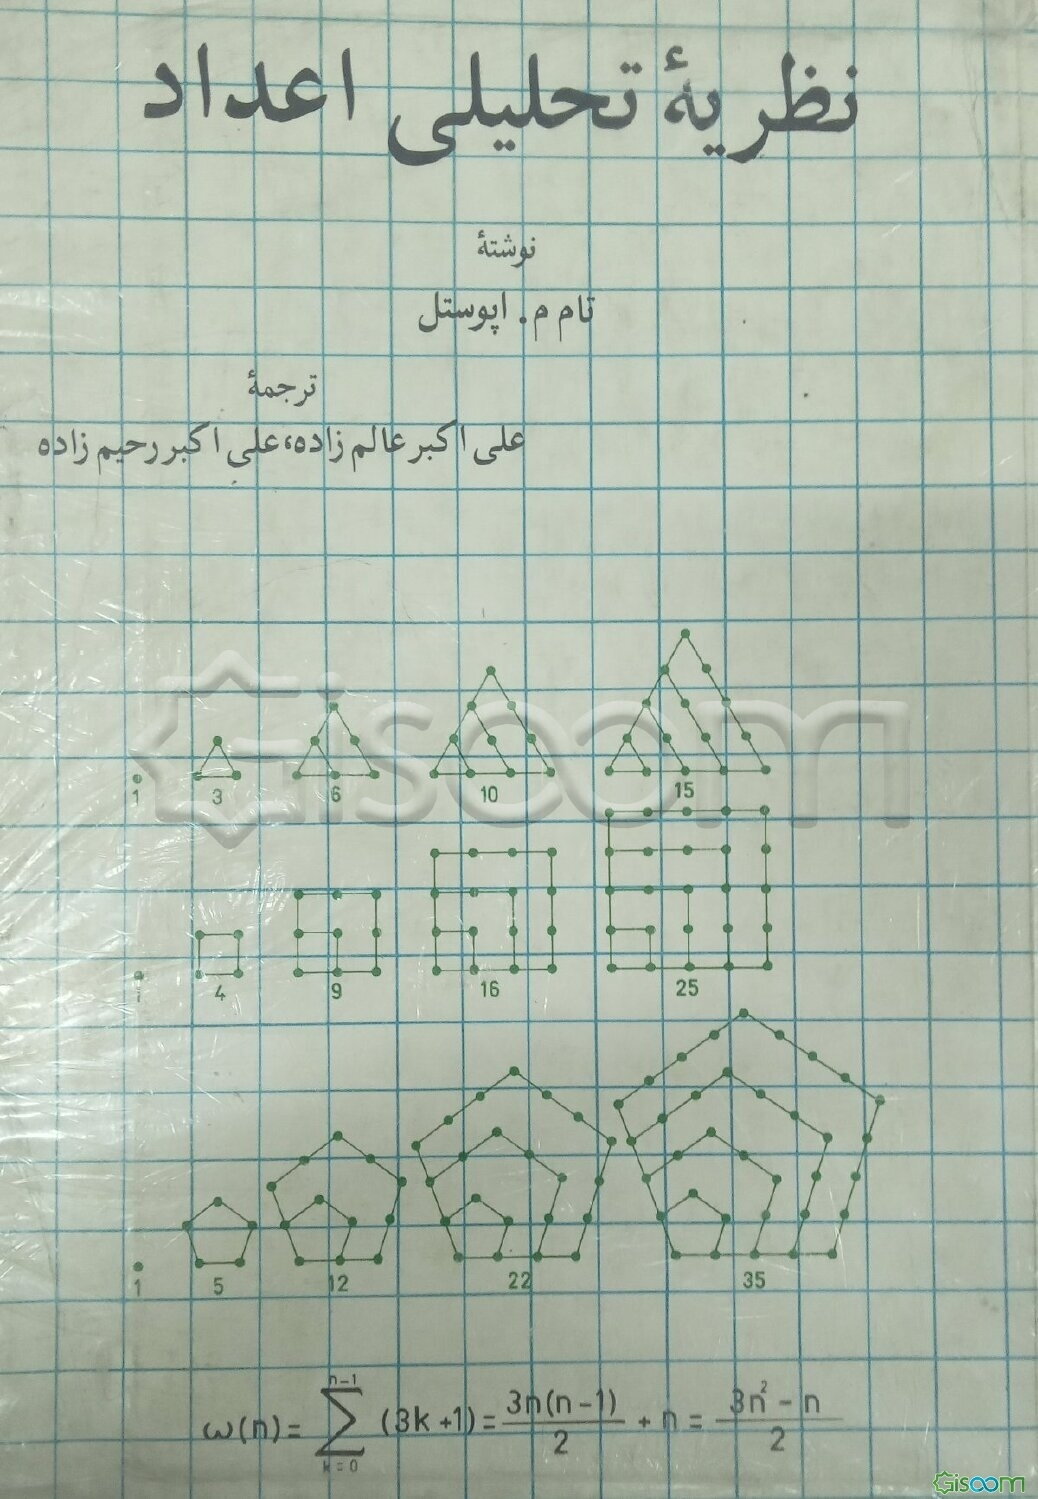 نظریهٔ تحلیلی اعداد
نوشتهٔ
تام م. اپوستل
ترجمهٔ
علی اکبر عالم زاده، علی اکبر رحیم زاده
Gisoom
1 3 6 10 15
1 4 9 16 25
1 5 12 22 35
ω(n) = ∑_{k=0}^{n-1} (3k+1) = \frac{3n(n-1)}{2} + n = \frac{3n²-n}{2}
Gisoom